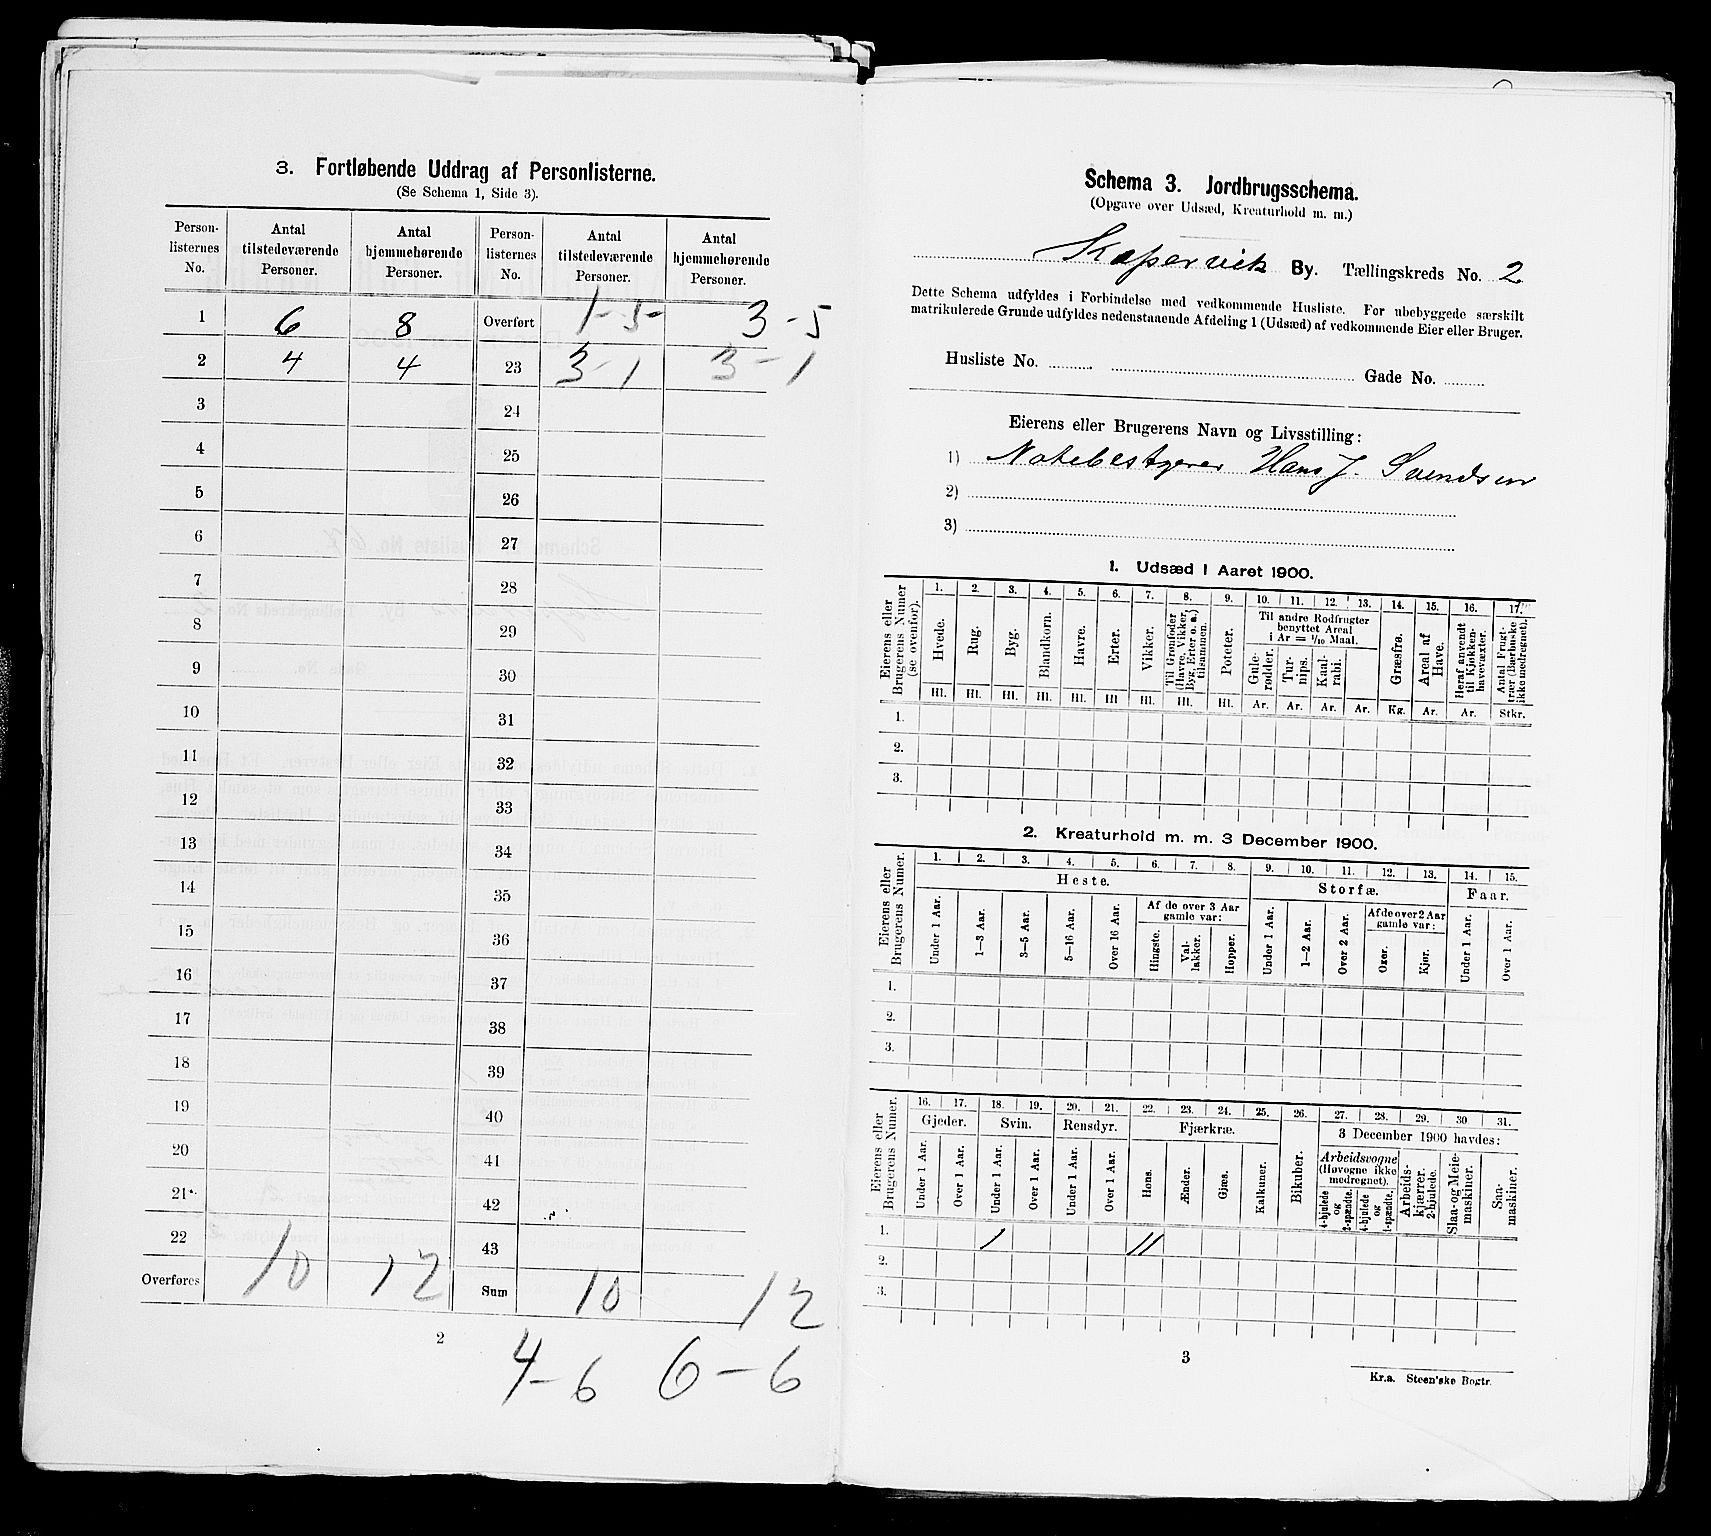 3. Fortløbende Uddrag af Personlisterne.
(Se Schema 1, Side 3).
Person-listernes No. | Antal tilstedeværende Personer. | Antal hjemmehørende Personer. | Person-listernes No. | Antal tilstedeværende Personer. | Antal hjemmehørende Personer.
1 | 6 | 8 | Overført | 1-5 | 3-5
2 | 4 | 4 | 23 | 3-1 | 3-1
3 | 24
4 | 25
5 | 26
6 | 27
7 | 28
8 | 29
9 | 30
10 | 31
11 | 32
12 | 33
13 | 34
14 | 35
15 | 36
16 | 37
17 | 38
18 | 39
19 | 40
20 | 41
21 | 42
22 | 43
Overføres | 10 | 12 | Sum | 10 | 12
2
4-6 6-6
Schema 3. Jordbrugsschema.
(Opgave over Udsæd, Kreaturhold m. m.)
Kopervik By. Tællingskreds No. 2
Dette Schema udfyldes i Forbindelse med vedkommende Husliste. For ubebyggede særskilt
matrikulerede Grunde udfyldes nedenstaaende Afdeling 1 (Udsæd) af vedkommende Eier eller Bruger.
Husliste No. Gade No.
Eierens eller Brugerens Navn og Livsstilling:
1) Notebestyrer Hans J. Svendsen
2)
3)
1. Udsæd i Aaret 1900.
Eierens eller Brugerens Numer (se ovenfor).
1. 2. 3. 4. 5. 6. 7. 8. 9. 10. 11. 12. 13. 14. 15. 16. 17.
Hvede. Rug. Byg. Blandkorn. Havre. Erter. Vikker. Til Grønfoder (Havre, Vikker, Byg, Erter o. a.) tilsammen. Poteter.
Til andre Rodfrugter benyttet Areal i Ar = 1/10 Maal.
Gule-rødder. Tur-nips. Kaal-rabi. Græsfrø. Areal af Have. Heraf anvendt til Kjøkken-havevæxter. Antal Frugt-trær (Bærbuske ikke medregnet).
Hl. Hl. Hl. Hl. Hl. Hl Hl. Hl. Hl. Ar. Ar. Ar. Ar. Kg. Ar. Ar. Stkr.
1.
2.
3.
2. Kreaturhold m. m. 3 December 1900.
Eierens eller Brugerens Numer.
1. 2. 3. 4. 5. 6. 7. 8. 9. 10. 11. 12. 13. 14. 15.
Heste. Storfæ. Faar.
Under 1 Aar. 1—3 Aar. 3—5 Aar. 5—16 Aar. Over 16 Aar. Af de over 3 Aar gamle var: Hingste. Val-lakker. Hopper. Under 1 Aar. 1—2 Aar. Over 2 Aar. Af de over 2 Aar gamle var: Oxer. Kjør. Under 1 Aar. Over 1 Aar.
1.
2.
3.
Eierens eller Brugerens Numer.
16. 17. 18. 19. 20. 21. 22. 23. 24. 25. 26. 27. 28. 29. 30 31.
Gjeder. Svin. Rensdyr. Fjærkræ. Bikuber. 3 December 1900 havdes:
Under 1 Aar. Over 1 Aar. Under 1 Aar. Over 1 Aar. Under 1 Aar. Over 1 Aar. Høns. Ænder. Gjæs. Kalkuner. Arbeidsvogne (Høvogne ikke medregnet). 4-hjulede og 2-spændte. 4-hjulede og 1-spændte. Arbeids-kjærrer, 2-hjulede. Slaa- og Meie-maskiner. Saa-maskiner.
1. 1 11
2.
3.
3
Kr.a. Steen'ske Bogtr.